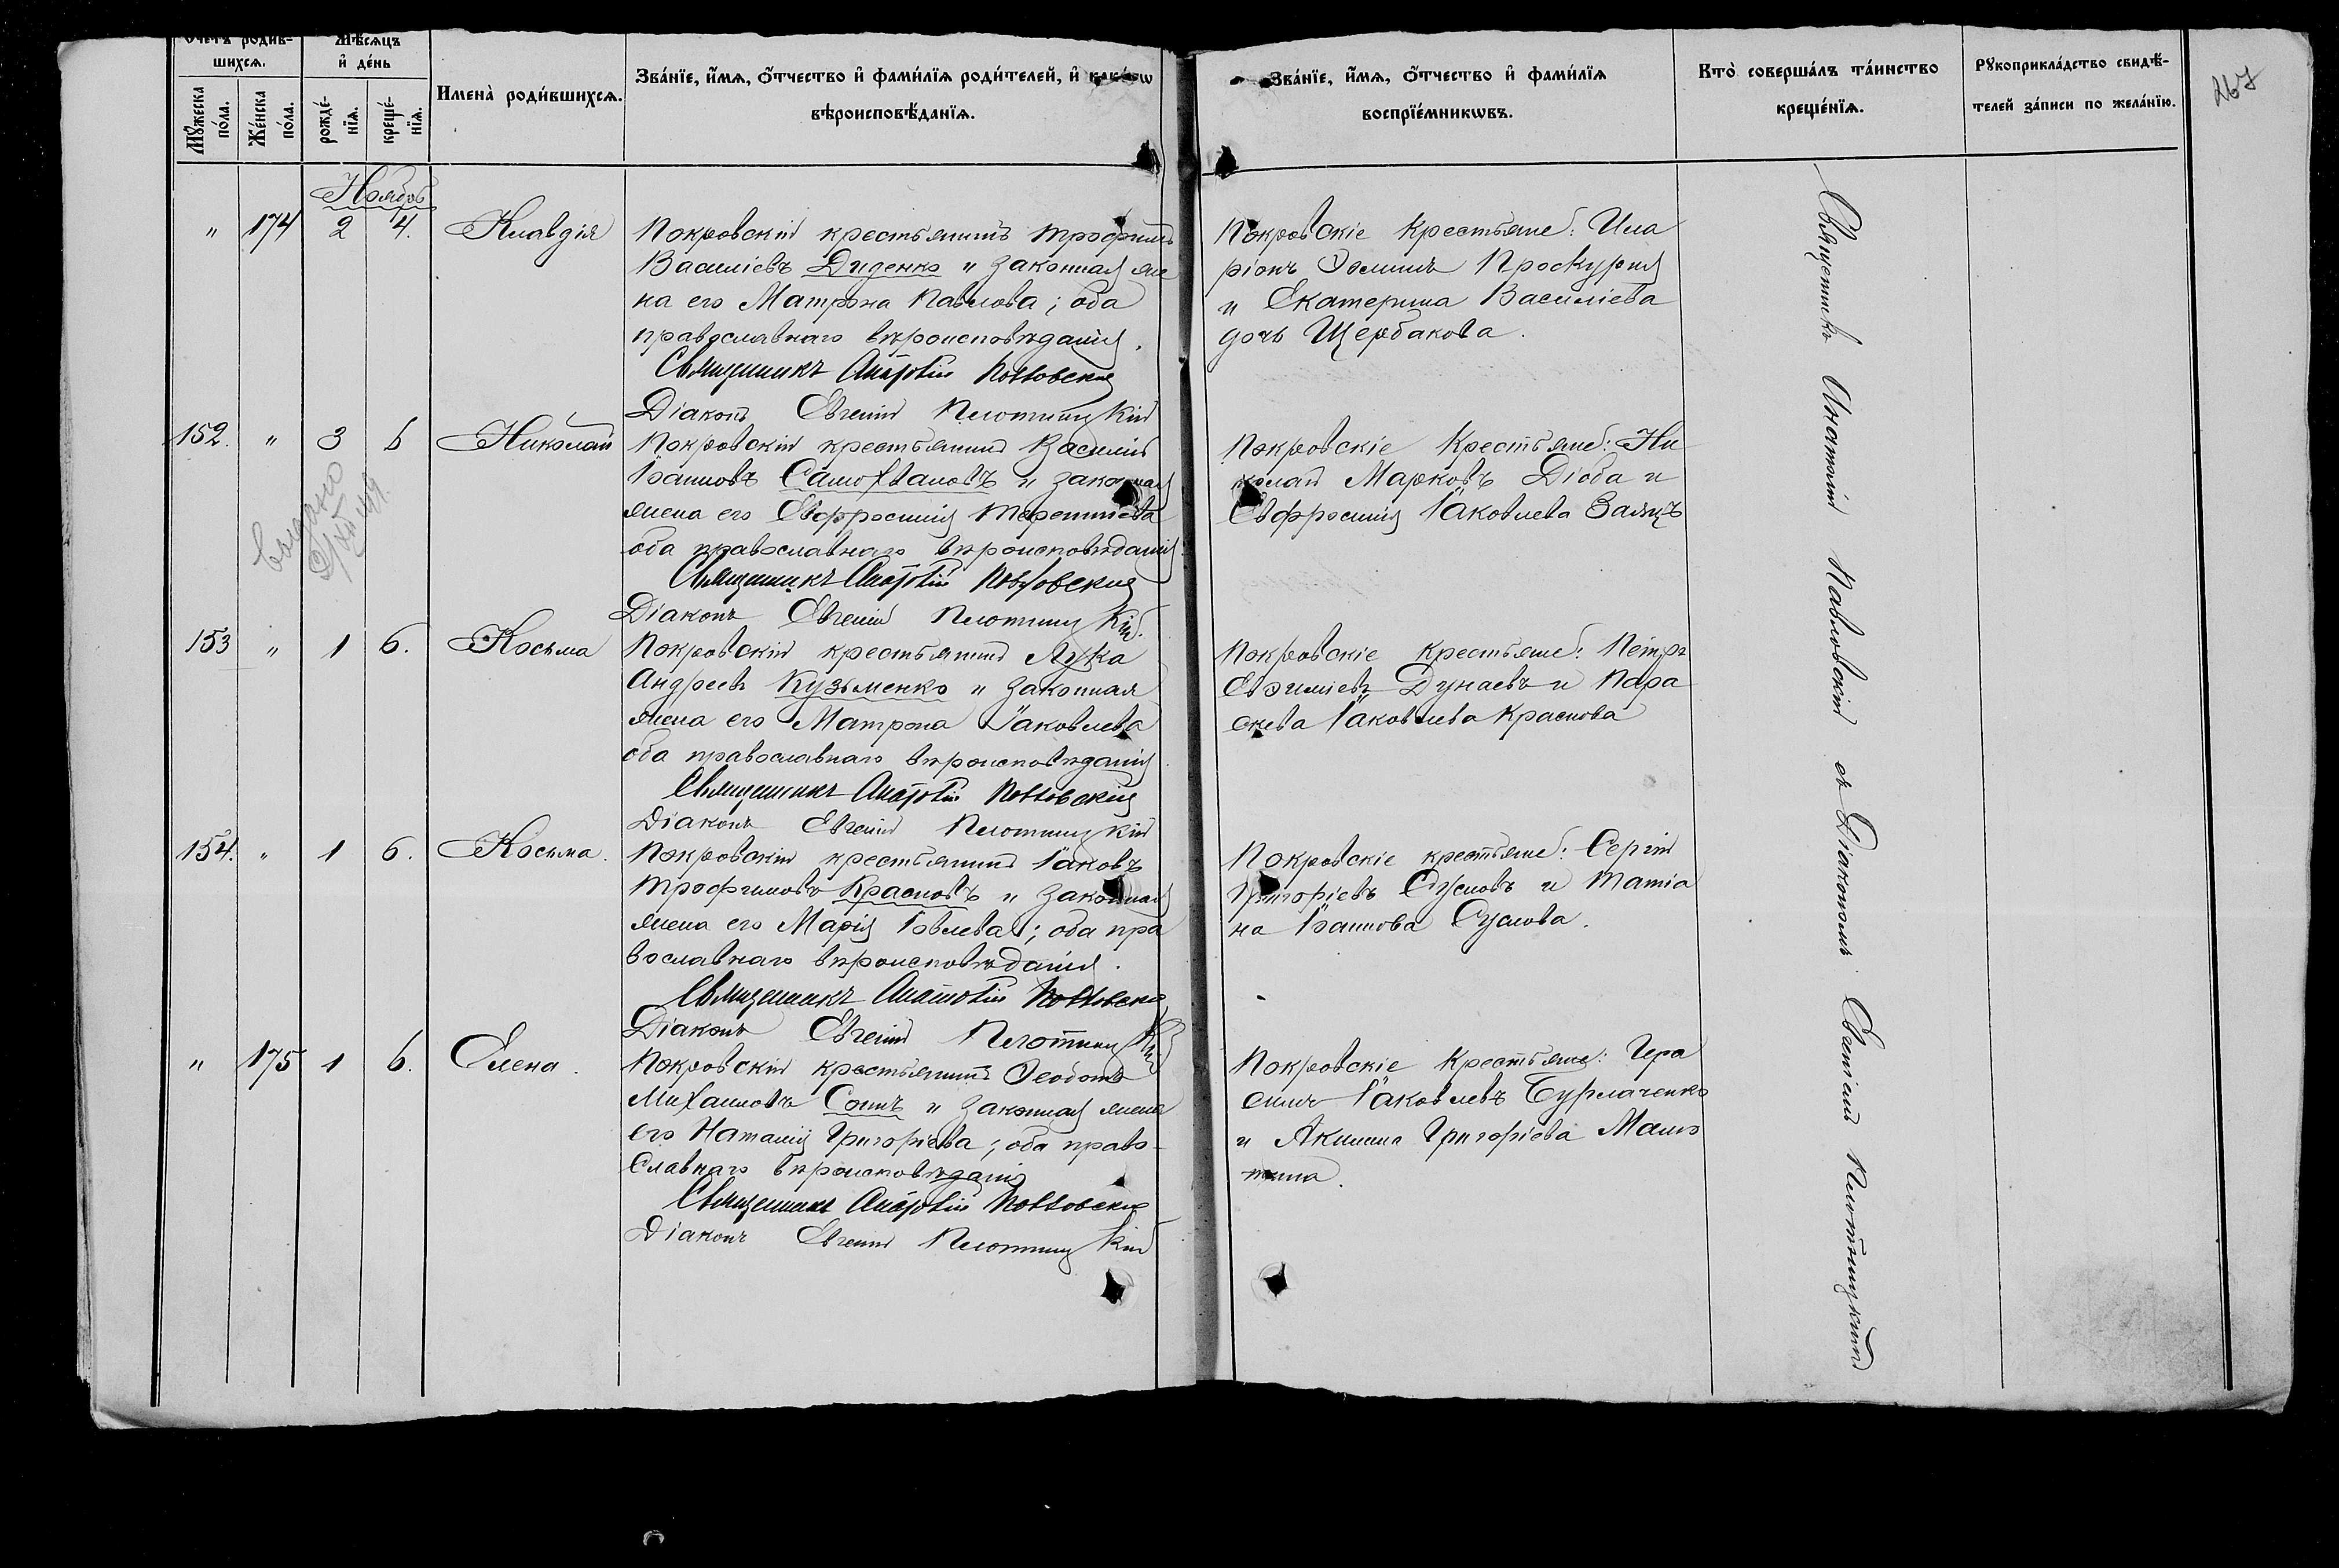 Счетъ родив-
шихся.
Мѣсяцъ
и҆ де́нь
Мꙋ́жеска
по́ла.
Же́нска
по́ла.
рожде́-
нїѧ.
креще́-
нїѧ.
Имена̀ роди́вшихсѧ.
Зва́нїе, и҆́мѧ, ѻ҆́тчество и҆ фами́лїѧ роди́телей, и҆ како́гѡ
вѣроисповѣ́данїѧ.
Зва́нїе, и҆́мѧ, ѻ҆́тчество и҆ фами́лїѧ
воспрїе́мникѡвъ.
Кто̀ соверша́лъ та́инство
креще́нїѧ.
Рꙋкоприкла́дство свидѣ́-
телей за́писи по жела́нїю.
267
Ноябрь
" 174 2 4. Клавдія
Покровскій крестьянинъ Трофимъ
Василіевъ Диденко и законная же
на его Матрона Павлова; оба
православнаго вѣроисповѣданія.
Священникъ Анатолій Павловскій
Діаконъ Евгеній Плотницкій
Покровскіе крестьяне: Ила
ріонъ Ѳоминъ Проскурня
и Екатерина Василіева
дочь Щербакова.
152. " 3 6 Николай
Покровскій крестьянинъ Василій
Іоанновъ Самохваловъ и законная
жена его Евфросинія Терентіева
оба православнаго вѣроисповѣданія
Священникъ Анатолій Павловскій
Діаконъ Евгеній Плотницкій.
Покровскіе крестьяне: Ни
колай Марковъ Дюба и
Евфросинія Іаковлева Заяцъ
Выдано
153 " 1 6. Косьма
Покровскій крестьянинъ Лука
Андреевъ Кузьменко и законная
жена его Матрона Іаковлева
оба православнаго вѣроисповѣданія.
Священникъ Анатолій Павловскій
Діаконъ Евгеній Плотницкій
Покровскіе крестьяне: Петръ
Евѳиміевъ Дунаевъ и Пара
скева Іаковлева Краснова
154. " 1 6. Косьма.
Покровскій крестьянинъ Іаковъ
Трофимовъ Красновъ и законная
жена его Марія Іовлева; оба пра
вославнаго вѣроисповѣданія.
Священникъ Анатолій Павловскій
Діаконъ Евгеній Плотницкій
Покровскіе крестьяне: Сергій
Григоріевъ Сусловъ и Татіа
на Іоаннова Суслова.
" 175 1 6. Елена.
Покровскій крестьянинъ Ѳеодотъ
Михаиловъ Сонъ и законная жена
его Наталія Григоріева; оба право-
славнаго вѣроисповѣданія
Священникъ Анатолій Павловскій
Діаконъ Евгеній Плотницкій
Покровскіе крестьяне: Гера
симъ Іаковлевъ Бурлаченко
и Акилина Григоріева Мало
тина.
Священникъ Анатолій Павловскій съ Діакономъ Евгеніемъ Плотницкимъ